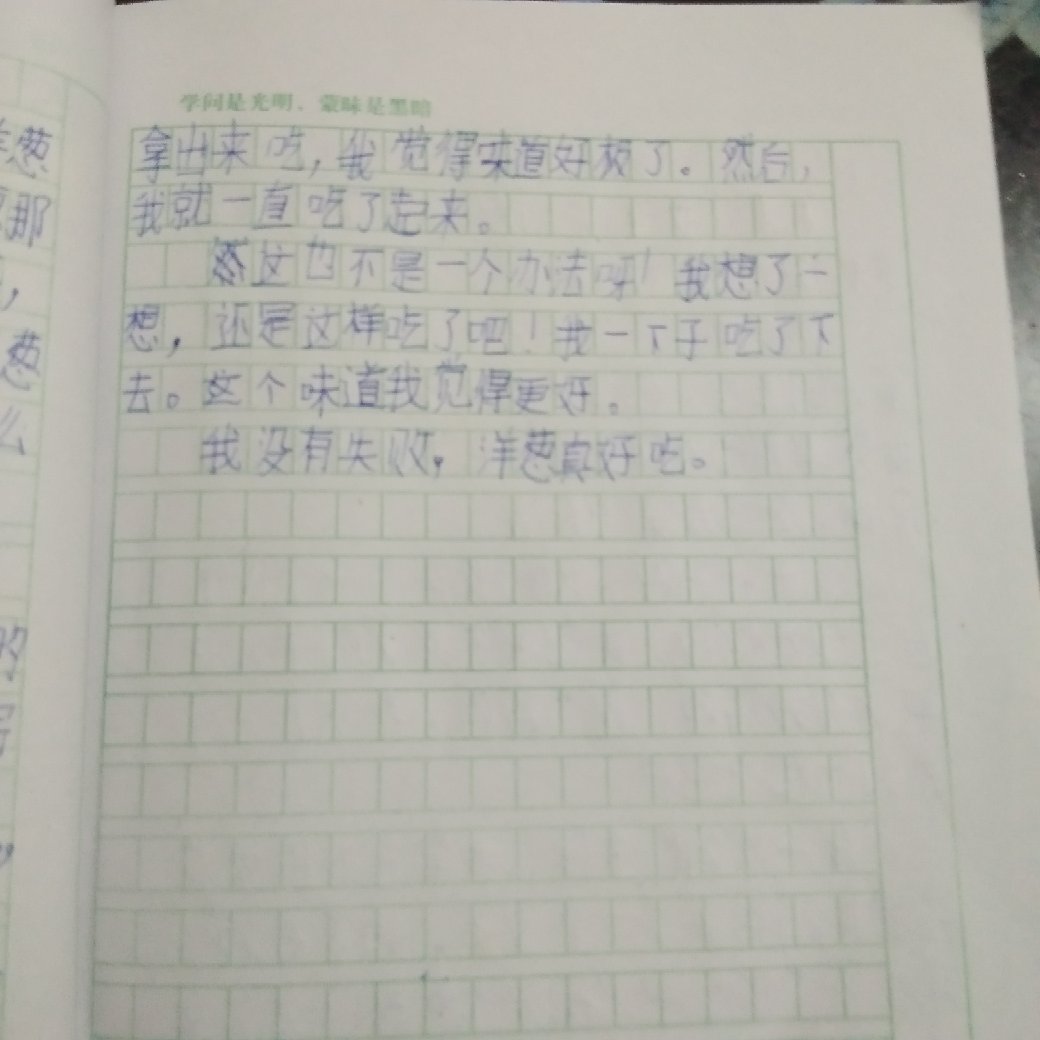 学问是光明、蒙昧是黑暗
拿出来吃，我觉得味道好极了。然后，
我就一直吃了起来。
这也不是一个办法呀！我想了一
想，还是这样吃了吧！我一下子吃了下
去。这个味道我觉得更好。
我没有失败，洋葱真好吃。
葱
那
，
葱
么
的